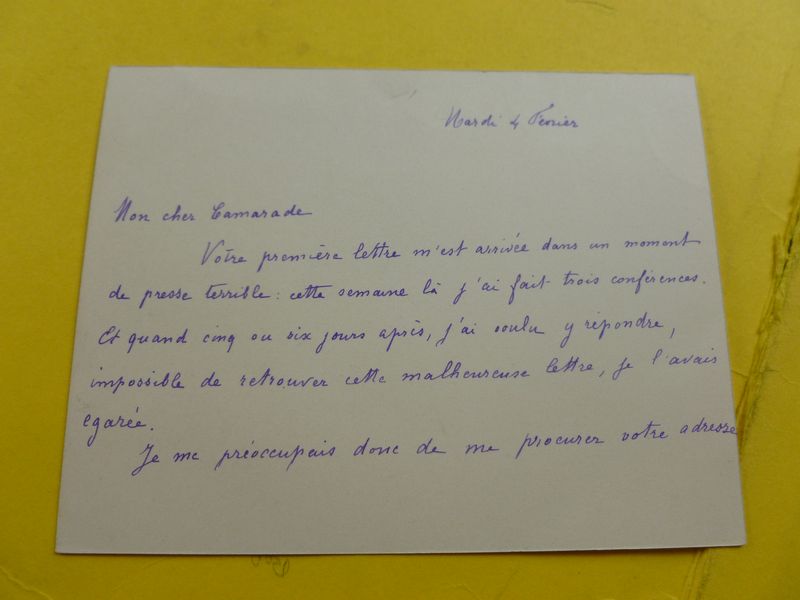 Mardi 4 Février
Mon cher Camarade
Votre première lettre m'est arrivée dans un moment
de presse terrible : cette semaine là j'ai fait trois conférences.
Et quand cinq ou six jours après, j'ai voulu y répondre,
impossible de retrouver cette malheureuse lettre, je l'avais
egarée.
Je me préoccupais donc de me procurer votre adresse